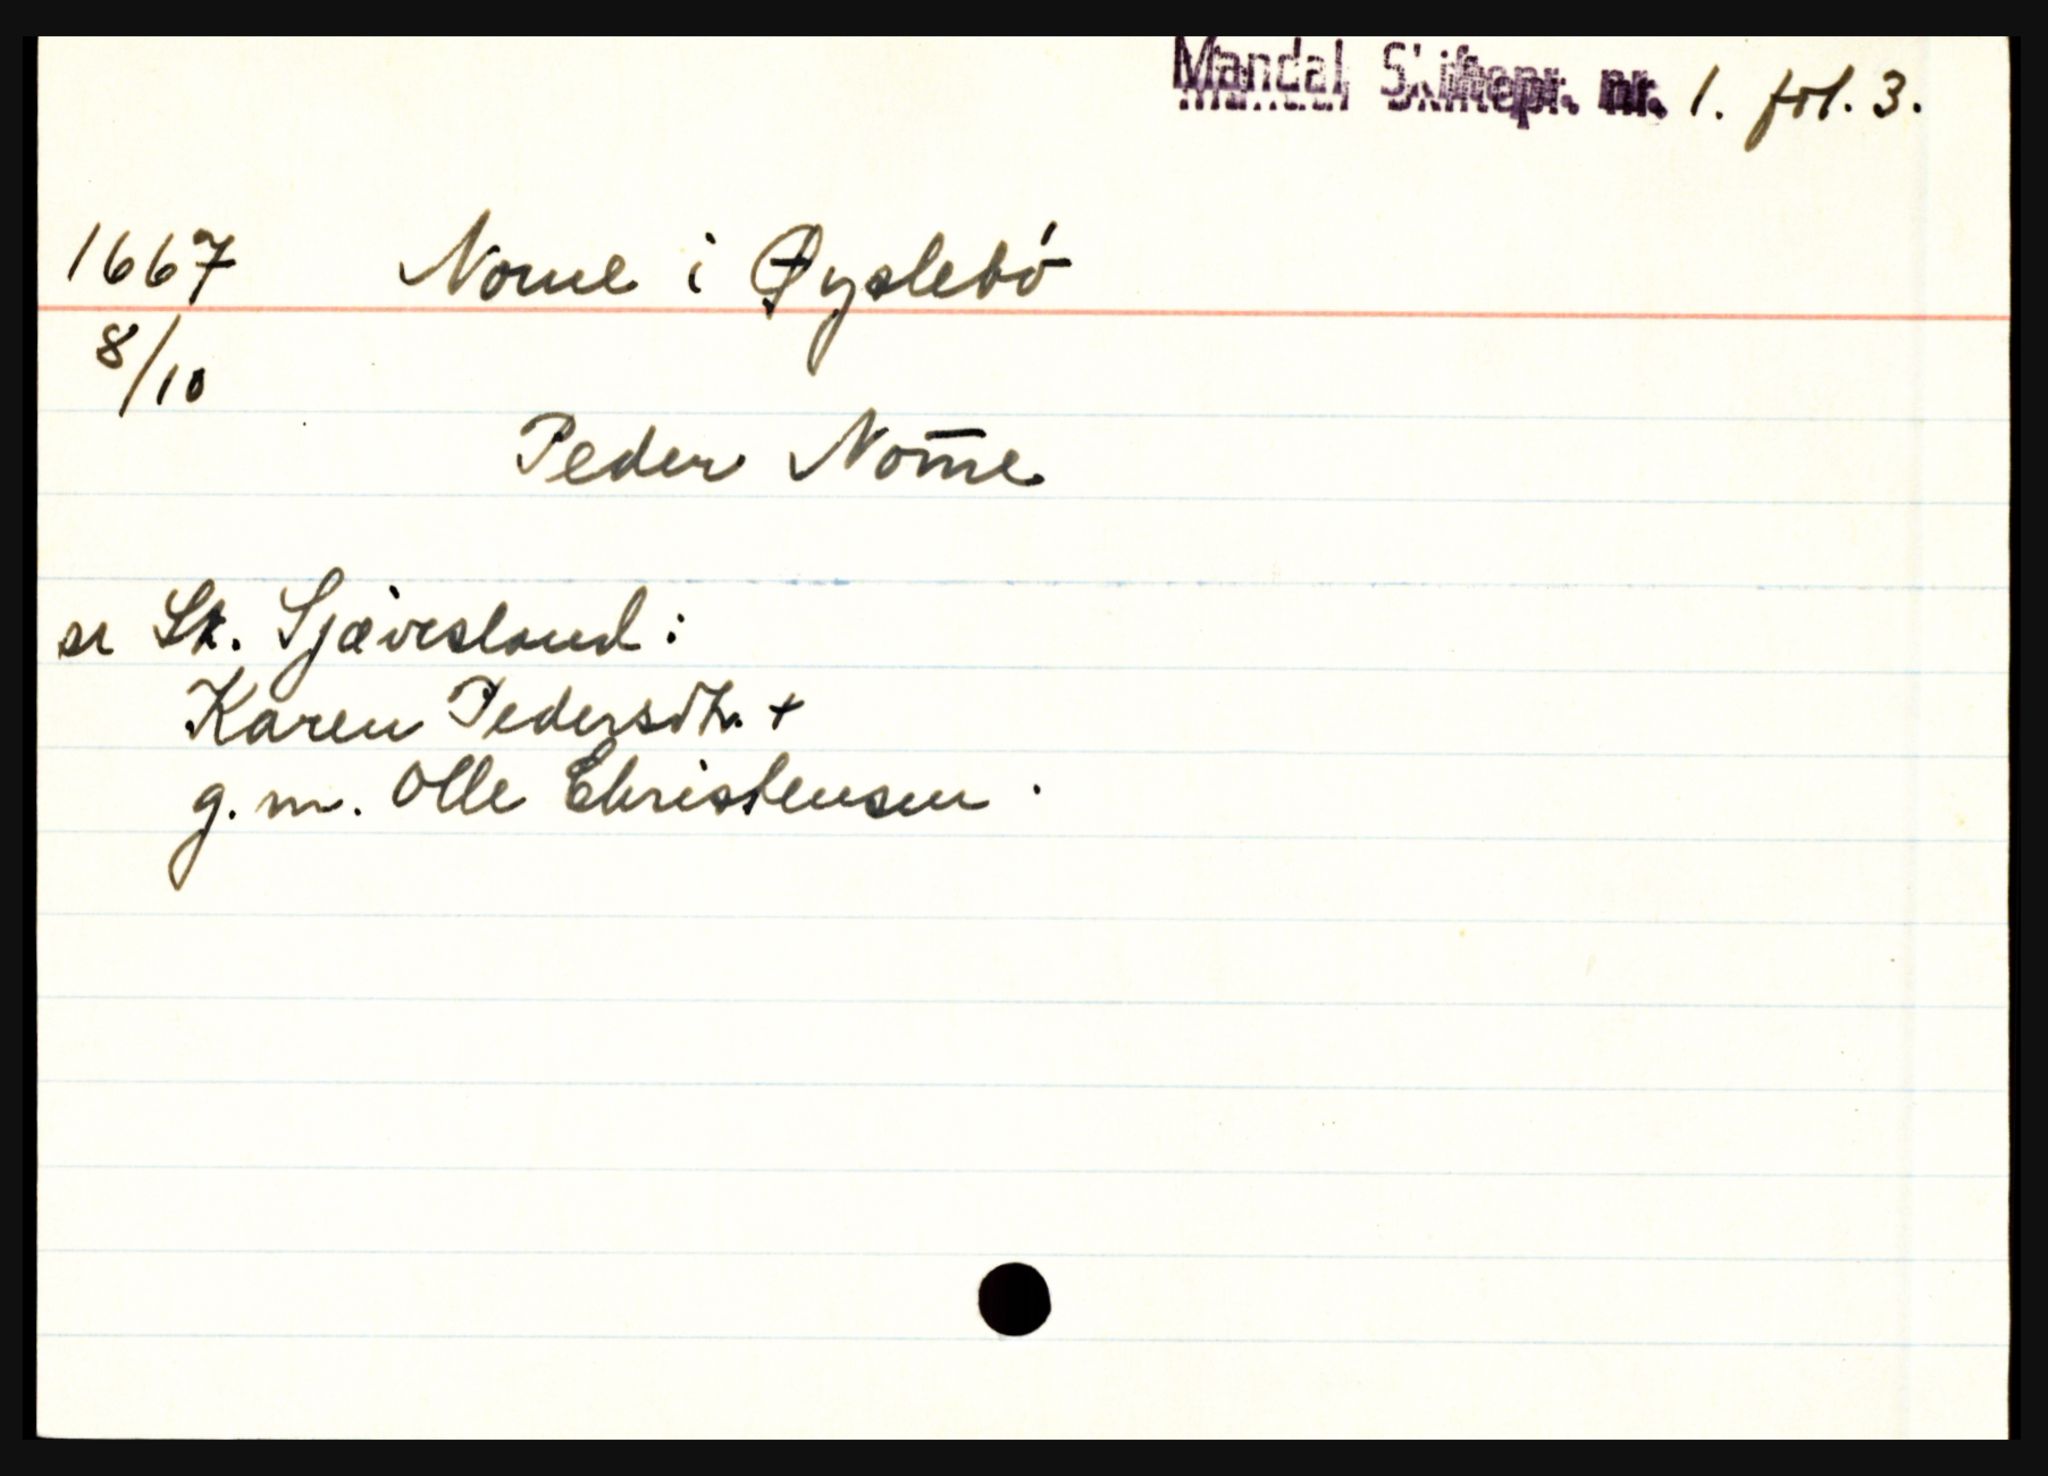 Mandal Skiftepr. nr. 1. fol. 3.
1667 Nome i Øyslebö
8/10
Peder Nom̅e
se Sk. Sjævesland:
Karen Pedersdtr. +
g. m. Olle Christensen.